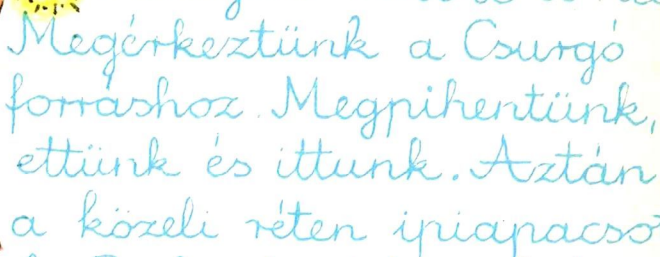 Megérkeztünk a Csurgó
forráshoz. Megpihentünk,
ettünk és ittunk. Aztán
a közeli réten ipiapacso